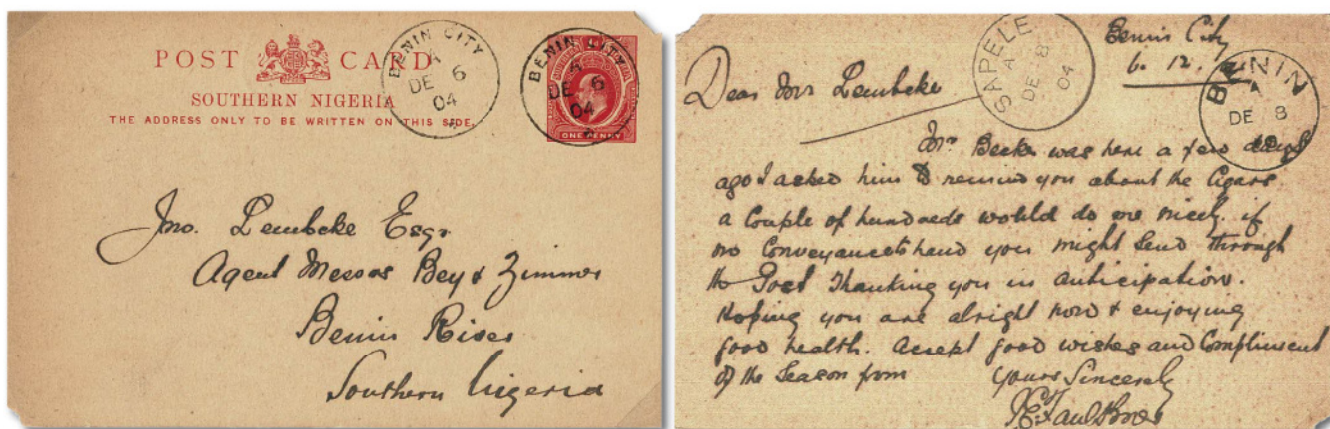 POST CARD
SOUTHERN NIGERIA
THE ADDRESS ONLY TO BE WRITTEN ON THIS SIDE.
BENIN CITY
A
DE 6
04
BENIN CITY
A
DE 6
04
ONE PENNY
Jno. Lembcke Esqr
Agent Messrs Bey & Zimmer
Benin River
Southern Nigeria
SAPELE
A
DE 8
04
Benin City
6. 12.
BENIN
A
DE 8
Dear Mr Lembcke
Mr Becker was here a few days
ago I asked him to remind you about the Cigars
a Couple of hundreds would do me nicely. if
no Conveyance to hand you might Send through
the Post Thanking you in anticipation.
Hoping you are alright now & enjoying
good health. Accept good wishes and Compliment
of the Season from Yours Sincerely